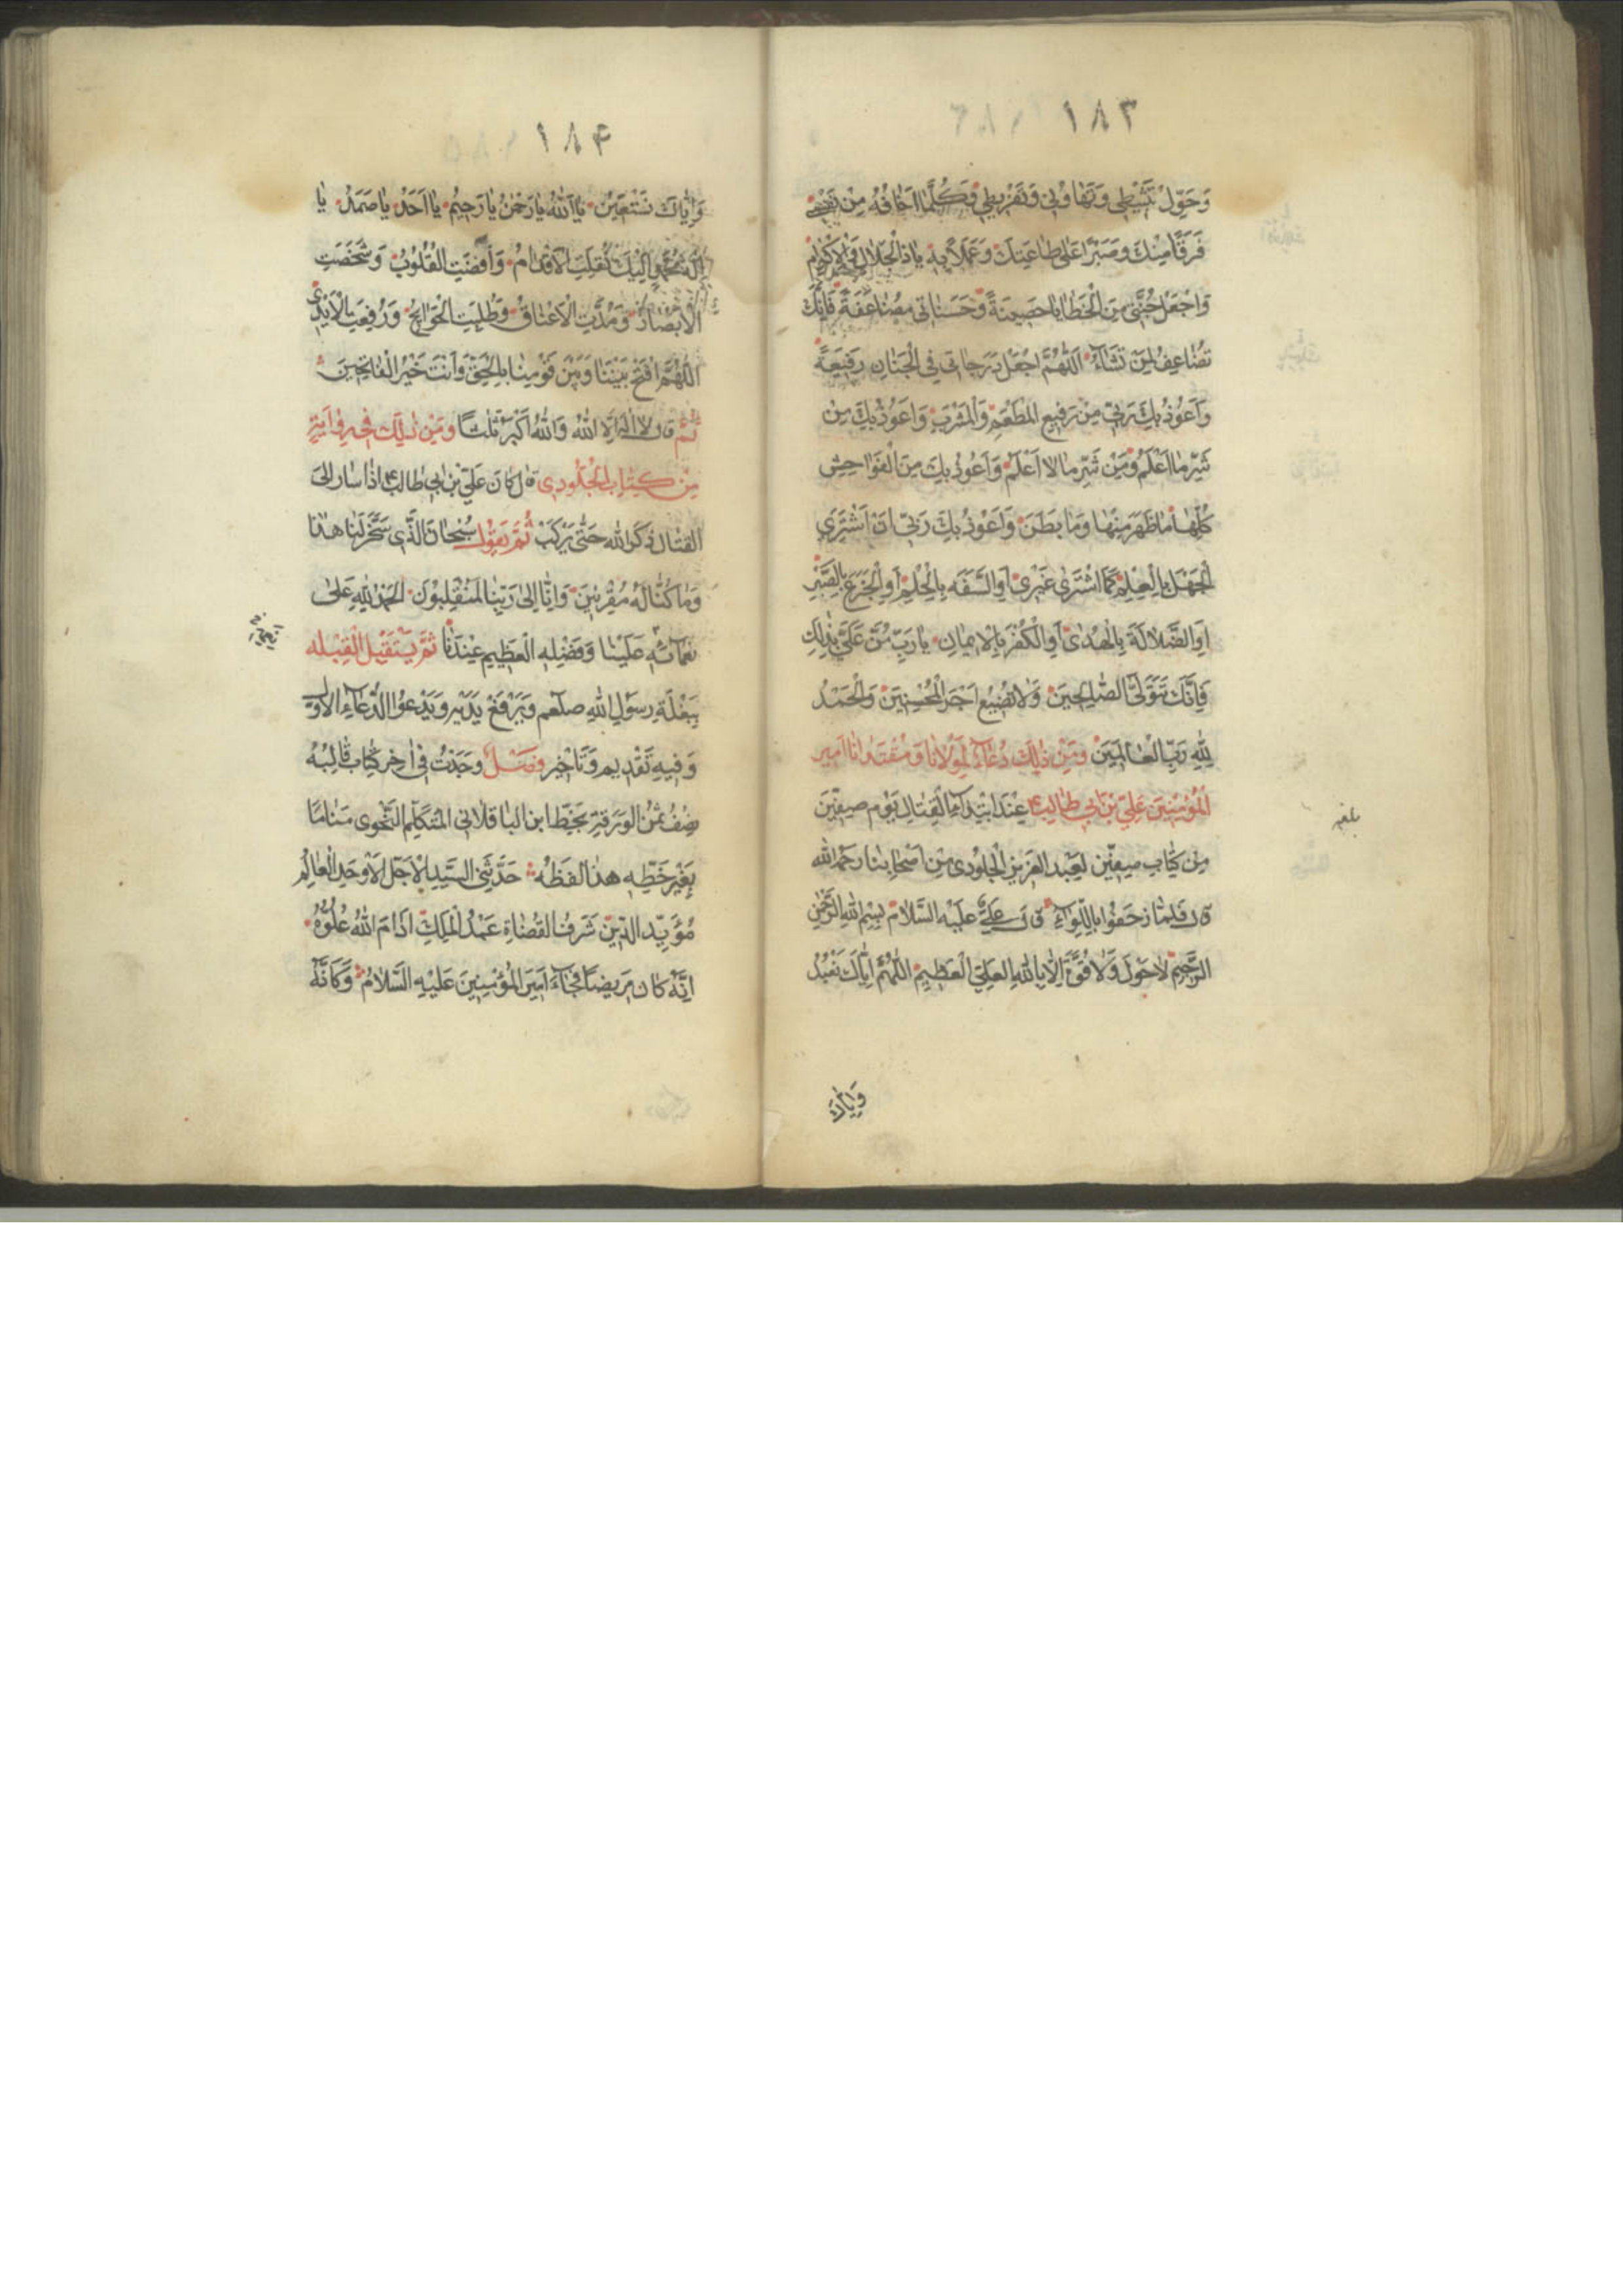 ١٨٣
وَحَوِّلْ تَثَبُّطِي وَتَهَاوُنِي وَتَفْرِيطِي وَكُلَّمَا اَخَافُهُ مِنْ نَفْسِي
فَرَقًا مِنْكَ وَصَبْرًا عَلَى طَاعَتِكَ وَعَمَلًا بِهِ يَا ذَا الْجَلَالِ وَالْاِكْرَامِ
وَاجْعَلْ جُنَّتِي مِنَ الْخَطَايَا حَصِينَةً وَحَسَنَاتِي مُضَاعَفَةً فَاِنَّكَ
تُضَاعِفُ لِمَنْ تَشَاءُ اَللّٰهُمَّ اجْعَلْ دَرَجَاتِي فِي الْجَنَانِ رَفِيعَةً
وَاَعُوذُ بِكَ رَبِّي مِنْ رَفِيعِ الْمَطْعَمِ وَالْمَشْرَبِ وَاَعُوذُ بِكَ مِنْ
شَرِّ مَا اَعْلَمُ وَمِنْ شَرِّ مَا لَا اَعْلَمُ وَاَعُوذُ بِكَ مِنَ الْفَوَاحِشِ
كُلِّهَا مَا ظَهَرَ مِنْهَا وَمَا بَطَنَ وَاَعُوذُ بِكَ رَبِّي اَنْ اَشْتَرِيَ
الْجَهْلَ بِالْعِلْمِ كَمَا اشْتَرَى غَيْرِي اَوِ السَّفَهَ بِالْحِلْمِ اَوِ الْجَزَعَ بِالصَّبْرِ
اَوِ الضَّلَالَةَ بِالْهُدَى اَوِ الْكُفْرَ بِالْاِيمَانِ يَا رَبِّ مُنَّ عَلَيَّ بِذٰلِكَ
فَاِنَّكَ تَتَوَلَّى الصَّالِحِينَ وَلَا تُضِيعُ اَجْرَ الْمُحْسِنِينَ وَالْحَمْدُ
لِلّٰهِ رَبِّ الْعَالَمِينَ وَمِنْ ذٰلِكَ دُعَاءٌ لِمَوْلَانَا وَمُقْتَدَانَا اَمِيرِ
الْمُؤْمِنِينَ عَلِيِّ بْنِ اَبِي طَالِبٍ عِنْدَ ابْتِدَاءِ الْقِتَالِ يَوْمَ صِفِّينَ
مِنْ كِتَابِ صِفِّينَ لِعَبْدِ الْعَزِيزِ الْجَلُودِي مِنْ اَصْحَابِنَا رَحِمَهُ اللّٰهُ
قَالَ فَلَمَّا زَحَفُوا بِاللِّوَاءِ قَالَ عَلِيٌّ عَلَيْهِ السَّلَامُ بِسْمِ اللّٰهِ الرَّحْمٰنِ
الرَّحِيمِ لَا حَوْلَ وَلَا قُوَّةَ اِلَّا بِاللّٰهِ الْعَلِيِّ الْعَظِيمِ اَللّٰهُمَّ اِيَّاكَ نَعْبُدُ
وَاِيَّاكَ
١٨۴
وَاِيَّاكَ نَسْتَعِينُ يَا اَللّٰهُ يَا رَحْمٰنُ يَا رَحِيمُ يَا اَحَدُ يَا صَمَدُ يَا
اِلٰهَ مُحَمَّدٍ اِلَيْكَ نُقِلَتِ الْاَقْدَامُ وَاَفْضَتِ الْقُلُوبُ وَشَخَصَتِ
الْاَبْصَارُ وَمُدَّتِ الْاَعْنَاقُ وَطُلِبَتِ الْحَوَائِجُ وَرُفِعَتِ الْاَيْدِي
اَللّٰهُمَّ افْتَحْ بَيْنَنَا وَبَيْنَ قَوْمِنَا بِالْحَقِّ وَاَنْتَ خَيْرُ الْفَاتِحِينَ
ثُمَّ قَالَ لَا اِلٰهَ اِلَّا اللّٰهُ وَاللّٰهُ اَكْبَرُ ثَلٰثًا وَمِنْ ذٰلِكَ فِي رِوَايَةٍ
مِنْ كِتَابِ الْجَلُودِي قَالَ كَانَ عَلِيُّ بْنُ اَبِي طَالِبٍ اِذَا سَارَ اِلَى
الْقِتَالِ ذَكَرَ اللّٰهَ حَتَّى يَرْكَبَ ثُمَّ يَقُولُ سُبْحَانَ الَّذِي سَخَّرَ لَنَا هٰذَا
وَمَا كُنَّا لَهُ مُقْرِنِينَ وَاِنَّا اِلَى رَبِّنَا لَمُنْقَلِبُونَ الْحَمْدُ لِلّٰهِ عَلَى
نَعْمَائِهِ عَلَيْنَا وَفَضْلِهِ الْعَظِيمِ عِنْدَنَا ثُمَّ يَسْتَقْبِلُ الْقِبْلَه
بِبَغْلَةِ رَسُولِ اللّٰهِ صلعم وَيَرْفَعُ يَدَيْهِ وَيَدْعُو الدُّعَاءَ الْاَوَّلَ
وَفِيهِ تَقْدِيمٌ وَتَاْخِيرٌ فَصْلٌ وَجَدْتُ فِي اٰخِرِ كِتَابٍ قَالِبُهُ
نِصْفُ ثُمْنِ الْوَرَقَةِ بِخَطِّ ابْنِ الْبَاقِلَانِي الْمُتَكَلِّمِ النَّحْوِي مَنَامًا
بِغَيْرِ خَطِّهِ هٰذَا لَفْظُهُ حَدَّثَنِي السَّيِّدُ الْاَجَلُّ الْاَوْحَدُ الْعَالِمُ
مُؤَيِّدُ الدِّينِ شَرَفُ الْقُضَاةِ عَبْدُ الْمَلِكِ اَدَامَ اللّٰهُ عُلُوَّهُ
اِنَّهُ كَانَ مَرِيضًا فَجَاءَ اَمِيرَ الْمُؤْمِنِينَ عَلَيْهِ السَّلَامُ وَكَاَنَّهُ